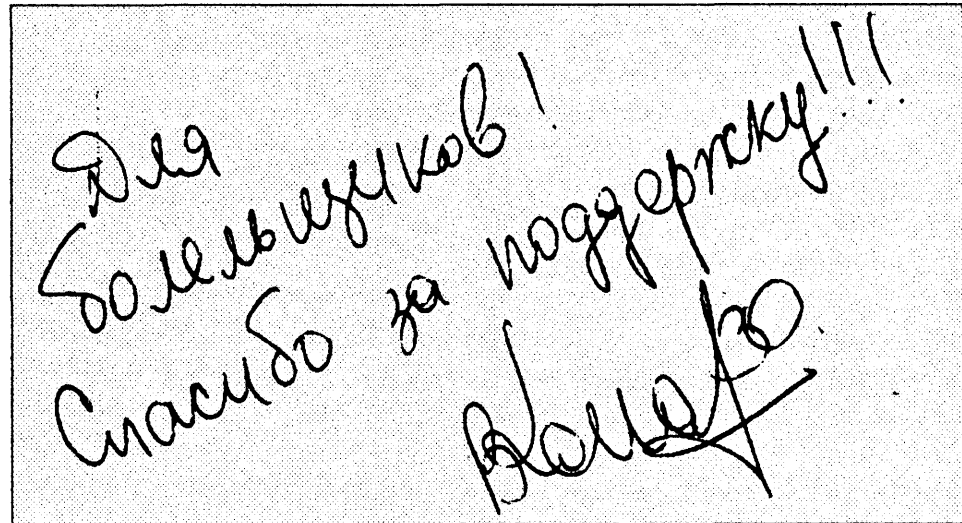 Для
болельщиков!
Спасибо за поддержку!!!